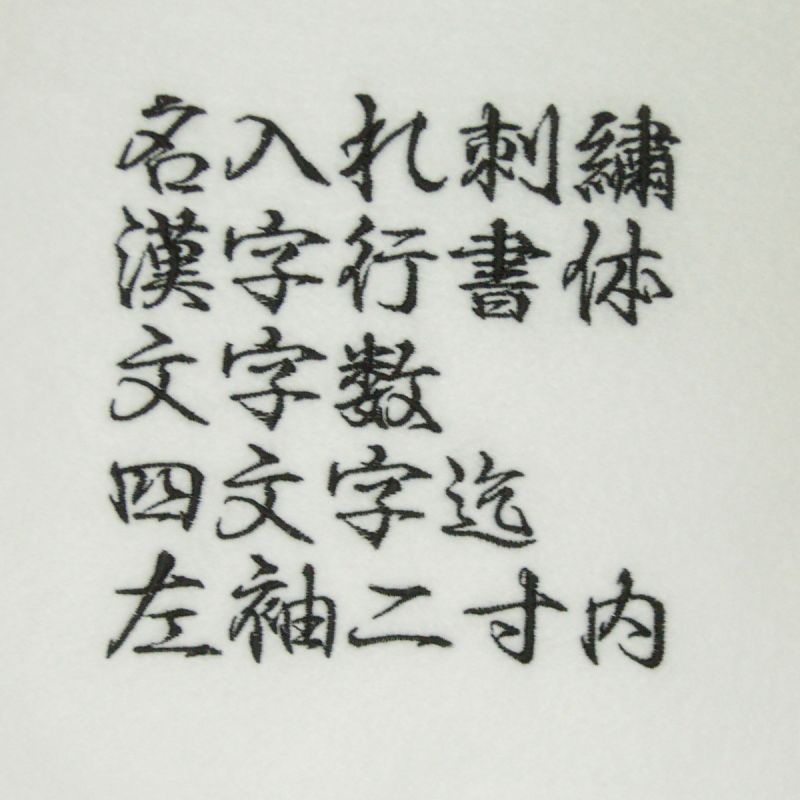 名入れ刺繍
漢字行書体
文字数
四文字迄
左袖二寸内